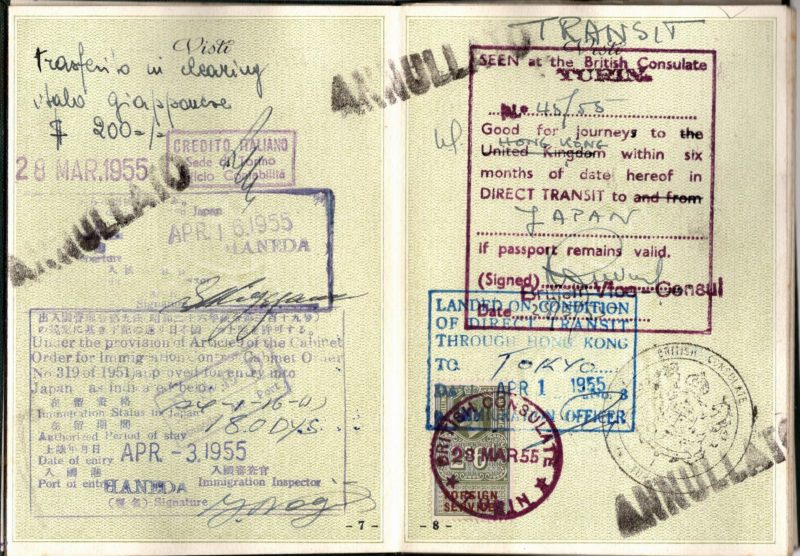 Visti
trasferito in clearing
italo giapponese
$ 200-/-
ANNULLATO
28 MAR.1955
CREDITO ITALIANO
Sede di Torino
Ufficio Contabilità
ANNULLATO
Japan
APR. 16.1955
HANEDA
Departure
入国審査官
Signature
出入国管理令(昭和二十六年政令第三百十九号)
Under the provision of Article of the Cabinet
Order for Immigration control Cabinet Order
No 319 of 1951, approved for entry into
Japan as indicated below
在留資格
Immigration Status in Japan 4-1-16-(3)
在留期間 180 DYS.
Authorized Period of stay
上陸年月日
Date of entry APR -3.1955
入国港 入国審査官
Port of entry HANEDA Immigration Inspector
(署名) Signature
- 7 -
TRANSIT
Visti
SEEN at the British Consulate
TURIN
No 45/55
Good for journeys to the
HONG KONG
United Kingdom within six
months of date hereof in
DIRECT TRANSIT to and from
JAPAN
if passport remains valid.
(Signed)
British Vice-Consul
Date
LANDED ON CONDITION
OF DIRECT TRANSIT
THROUGH HONG KONG
TO TOKYO
DATE APR 1 1955
No. 3
IMMIGRATION OFFICER
BRITISH CONSULATE
28 MAR 55
TURIN
2/6
FOREIGN
SERVICE
BRITISH CONSULATE
ANNULLATO
- 8 -